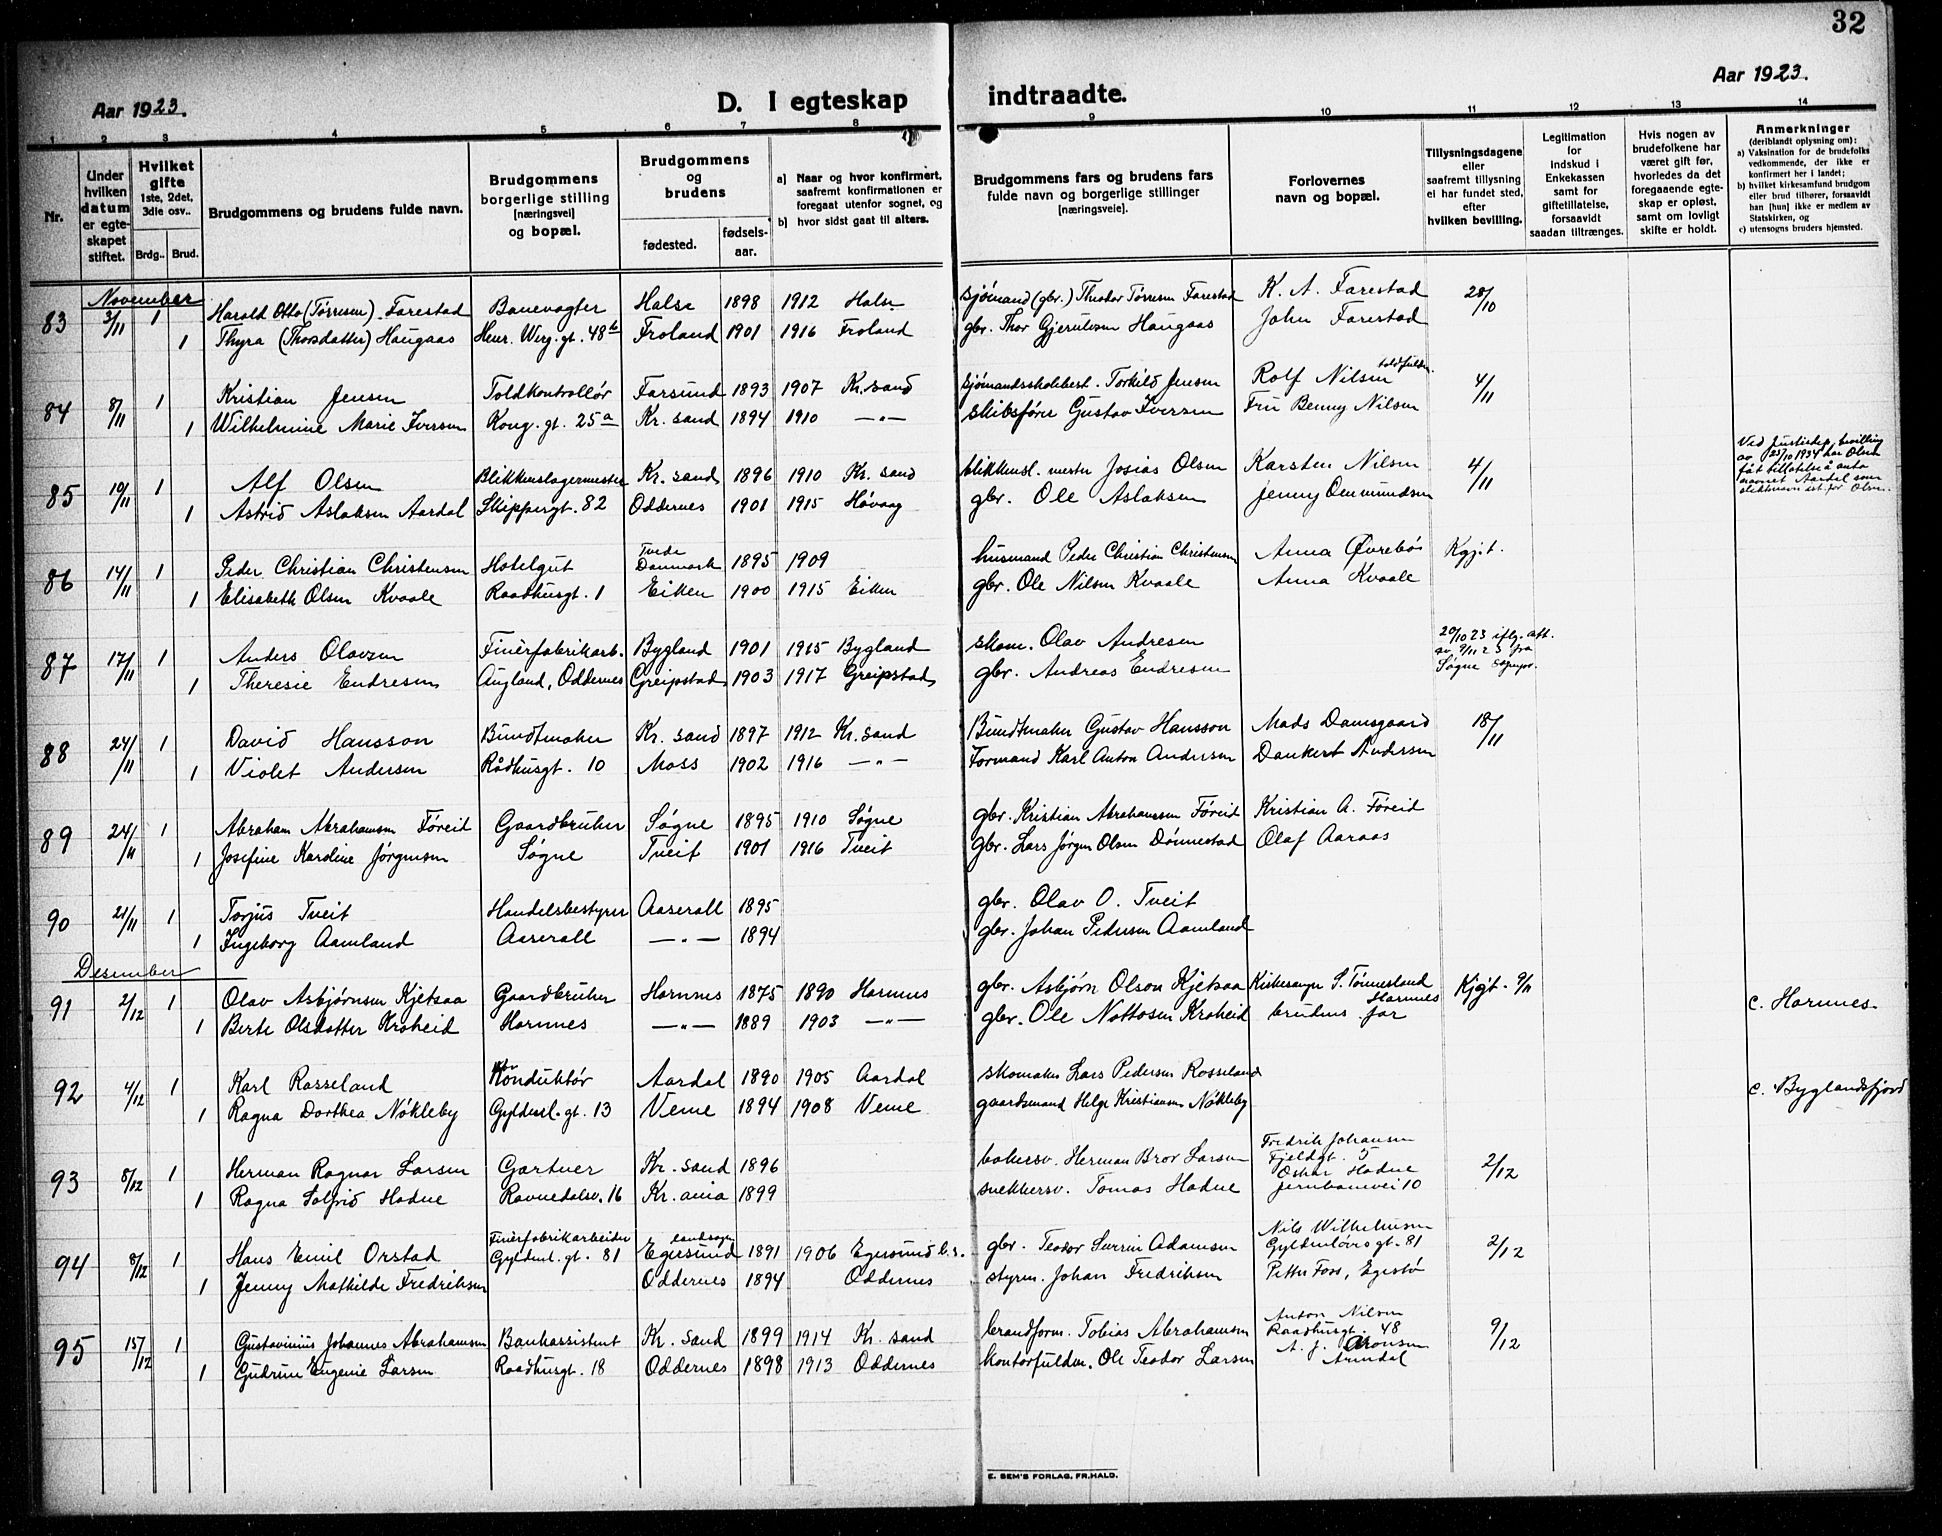 32
Aar 1923.
D. I egteskap
indtraadte.
Aar 1923.
1 2 3 4 5 6 7 8 9 10 11 12 13 14
Nr.
Under hvilken datum er egteskapet stiftet.
Hvilket gifte 1ste, 2det, 3die osv..
Brdg.. Brud.
Brudgommens og brudens fulde navn.
Brudgommens borgerlige stilling [næringsvei] og bopæl.
Brudgommens og brudens
fødested.
fødsels-aar.
a) Naar og hvor konfirmert, saafremt konfirmationen er foregaat utenfor sognet, og
b) hvor sidst gaat til alters.
Brudgommens fars og brudens fars fulde navn og borgerlige stillinger [næringsveie].
Forlovernes navn og bopæl.
Tillysningsdagene eller saafremt tillysning ei har fundet sted, efter hvilken bevilling.
Legitimation for indskud i Enkekassen samt for giftetillatelse, forsaavidt saadan tiltrænges.
Hvis nogen av brudefolkene har været gift før, hvorledes da det foregaaende egteskap er opløst, samt om lovligt skifte er holdt.
Anmerkninger (deriblandt oplysning om):
a) Vaksination for de brudefolks vedkommende, der ikke er konfirmert her i landet;
b) hvilket kirkesamfund brudgom eller brud tilhører, forsaavidt han [hun] ikke er medlem av Statskirken, og
c) utensogns bruders hjemsted.
November
83 3/11 1 Harald Otto (Tørresen) Farestad Banevogter Halse 1898 1912 Halse sjømand (gbr.) Theodor Tørresen Farestad K. A. Farestad 28/10
1 Thyra (Thorsdatter) Haugaas Henr. Werg. gt. 48b Froland 1901 1916 Froland gbr. Thor Gjerulvsen Haugaas John Farestad
84 8/11 1 Kristian Jensen Toldkontrollør Farsund 1893 1907 Kr. sand sjømandsskolebest. Torkild Jensen Rolf Nilsen toldfuldm. 4/11
1 Wilhelmine Marie Iversen Kong. gt. 25a Kr. sand 1894 1910 —"— skibsfører Gustav Iversen Fru Benny Nilsen
85 10/11 1 Alf Olsen Blikkenslagermester Kr. sand 1896 1910 Kr. sand blikkensl. mester Josias Olsen Karsten Nilsen 4/11
1 Astrid Aslaksen Aardal Skippergt. 82 Oddernes 1901 1915 Høvaag gbr. Ole Aslaksen Jenny Ommundsen
Ved justisdep. bevilling
av 25/10 1934 har Olsen
fåt tillatelse å anta
navnet Aardal som
slektsnavn ist. for Olsen.
86 14/11 1 Peder Christian Christensen Hotelgut Tvede Danmark 1895 1909 husmand Peder Christian Christensen Anna Øvrebø Kgjt.
1 Elisabeth Olsen Kvaale Raadhusgt. 1 Eiken 1900 1915 Eiken gbr. Ole Nilsen Kvaale Anna Kvaale
87 17/11 1 Anders Olavsen Finérfabrikarb. Bygland 1901 1915 Bygland skom. Olav Andresen
1 Theresie Endresen Augland, Oddernes Greipstad 1903 1917 Greipstad gbr. Andreas Endresen
20/10 23 iflg. att.
av 9/11 23 fra
Søgne sognepr.
88 24/11 1 David Hansson Bundtmaker Kr. sand 1897 1912 Kr. sand Bundtmaker Gustav Hansson Mads Damsgaard 18/11
1 Violet Andersen Rådhusgt. 10 Moss 1902 1916 —"— Formand Karl Anton Andersen Dankert Andersen
89 24/11 1 Abraham Abrahamsen Føreid Gaardbruker Søgne 1895 1910 Søgne gbr. Kristian Abrahamsen Føreid Kristian A. Føreid
1 Josefine Karoline Jørgensen Søgne Tveit 1901 1916 Tveit gbr. Lars Jørgen Olsen Dønnestad Olaf Aaraas
90 21/11 1 Torjus Tveit Handelsbestyrer Aaserall 1895 gbr. Olav O. Tveit
1 Ingeborg Aamland Aaserall —"— 1894 gbr. Johan Pedersen Aamland
Desember
91 2/12 1 Olav Asbjørnsen Kjetsaa Gaardbruker Hornnes 1875 1890 Hornnes gbr. Asbjørn Olson Kjetsaa Kirkesanger S. Tønnesland Hornnes Kjgt. 9/11 c. Hornnes.
1 Berte Olsdatter Kroheid Hornnes —"— 1889 1903 —"— gbr. Ole Nottosen Kroheid brudens far
92 4/12 1 Karl Rosseland Konduktør Aardal 1890 1905 Aardal skomaker Lars Pedersen Rosseland c. Byglandsfjord
1 Ragna Dorthea Nøkleby Gyldenl. gt. 13 Veme 1894 1908 Veme gaardmand Helge Kristiansen Nøkleby
93 8/12 1 Herman Ragnar Larsen Gartner Kr. sand 1896 bakersv. Herman Bror Larsen Fredrik Johansen Fjeldgt. 5 2/12
1 Ragna Solfrid Hodne Ravnedalsv. 16 Kr. ania 1899 snekkersv. Tomas Hodne Oskar Hodne Jernbanevei 10
94 8/12 1 Hans Emil Orstad Finérfabrikarbeider Gyldenl. gt. 81 Egersund landsogn 1891 1906 Egersund l. s. gbr. Teodor Severin Adamsen Nils Wilhelmsen Gyldenløves gt. 81 2/12
1 Jenny Mathilde Fredriksen Oddernes 1894 Oddernes styrm. Johan Fredriksen Petter Foss, Egestø
95 15/12 1 Gustavinius Johannes Abrahamsen Bankassistent Kr. sand 1899 1914 Kr. sand brandform. Tobias Abrahamsen Anton Nilsen Raadhusgt. 48 9/12
1 Gudrun Eugenie Larsen Raadhusgt. 18 Oddernes 1898 1913 Oddernes kontorfuldm. Ole Teodor Larsen A. J. Aronsen Arendal
E. SEM'S FORLAG, FR.HALD.